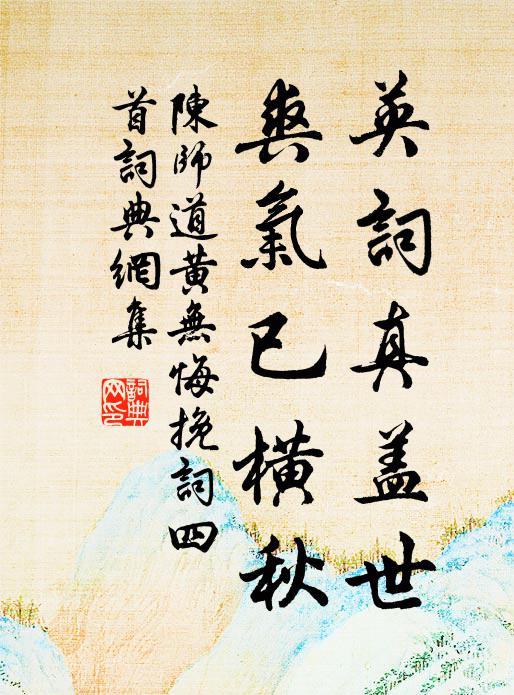 英詞真盖世
爽氣已橫秋
陳師道黃無悔挽詞四
首詞典網集
詞典
网印